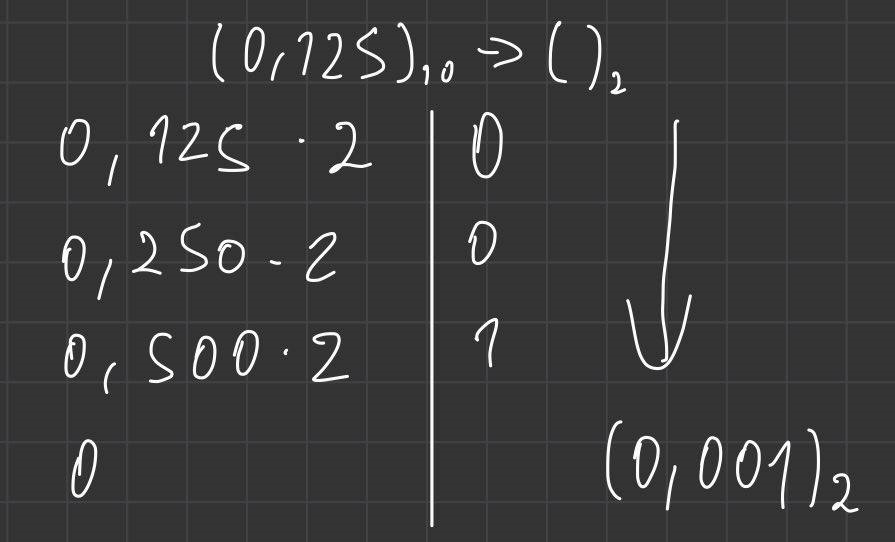 (0,125)₁₀ → ( )₂
0,125 · 2 | 0
0,250 · 2 | 0
0,500 · 2 | 1
0
(0,001)₂